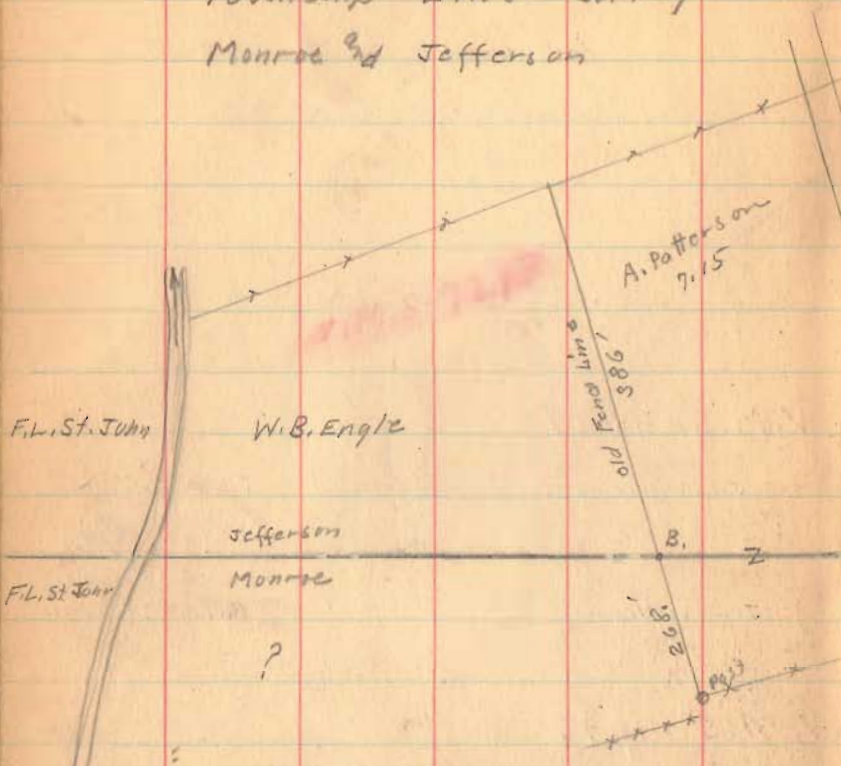 Monroe and Jefferson
A. Patterson
7.15
old Fence Line
386'
F.L. St. John
W.B. Engle
Jefferson
B.
Z
F.L. St John
Monroe
268'
?
Post